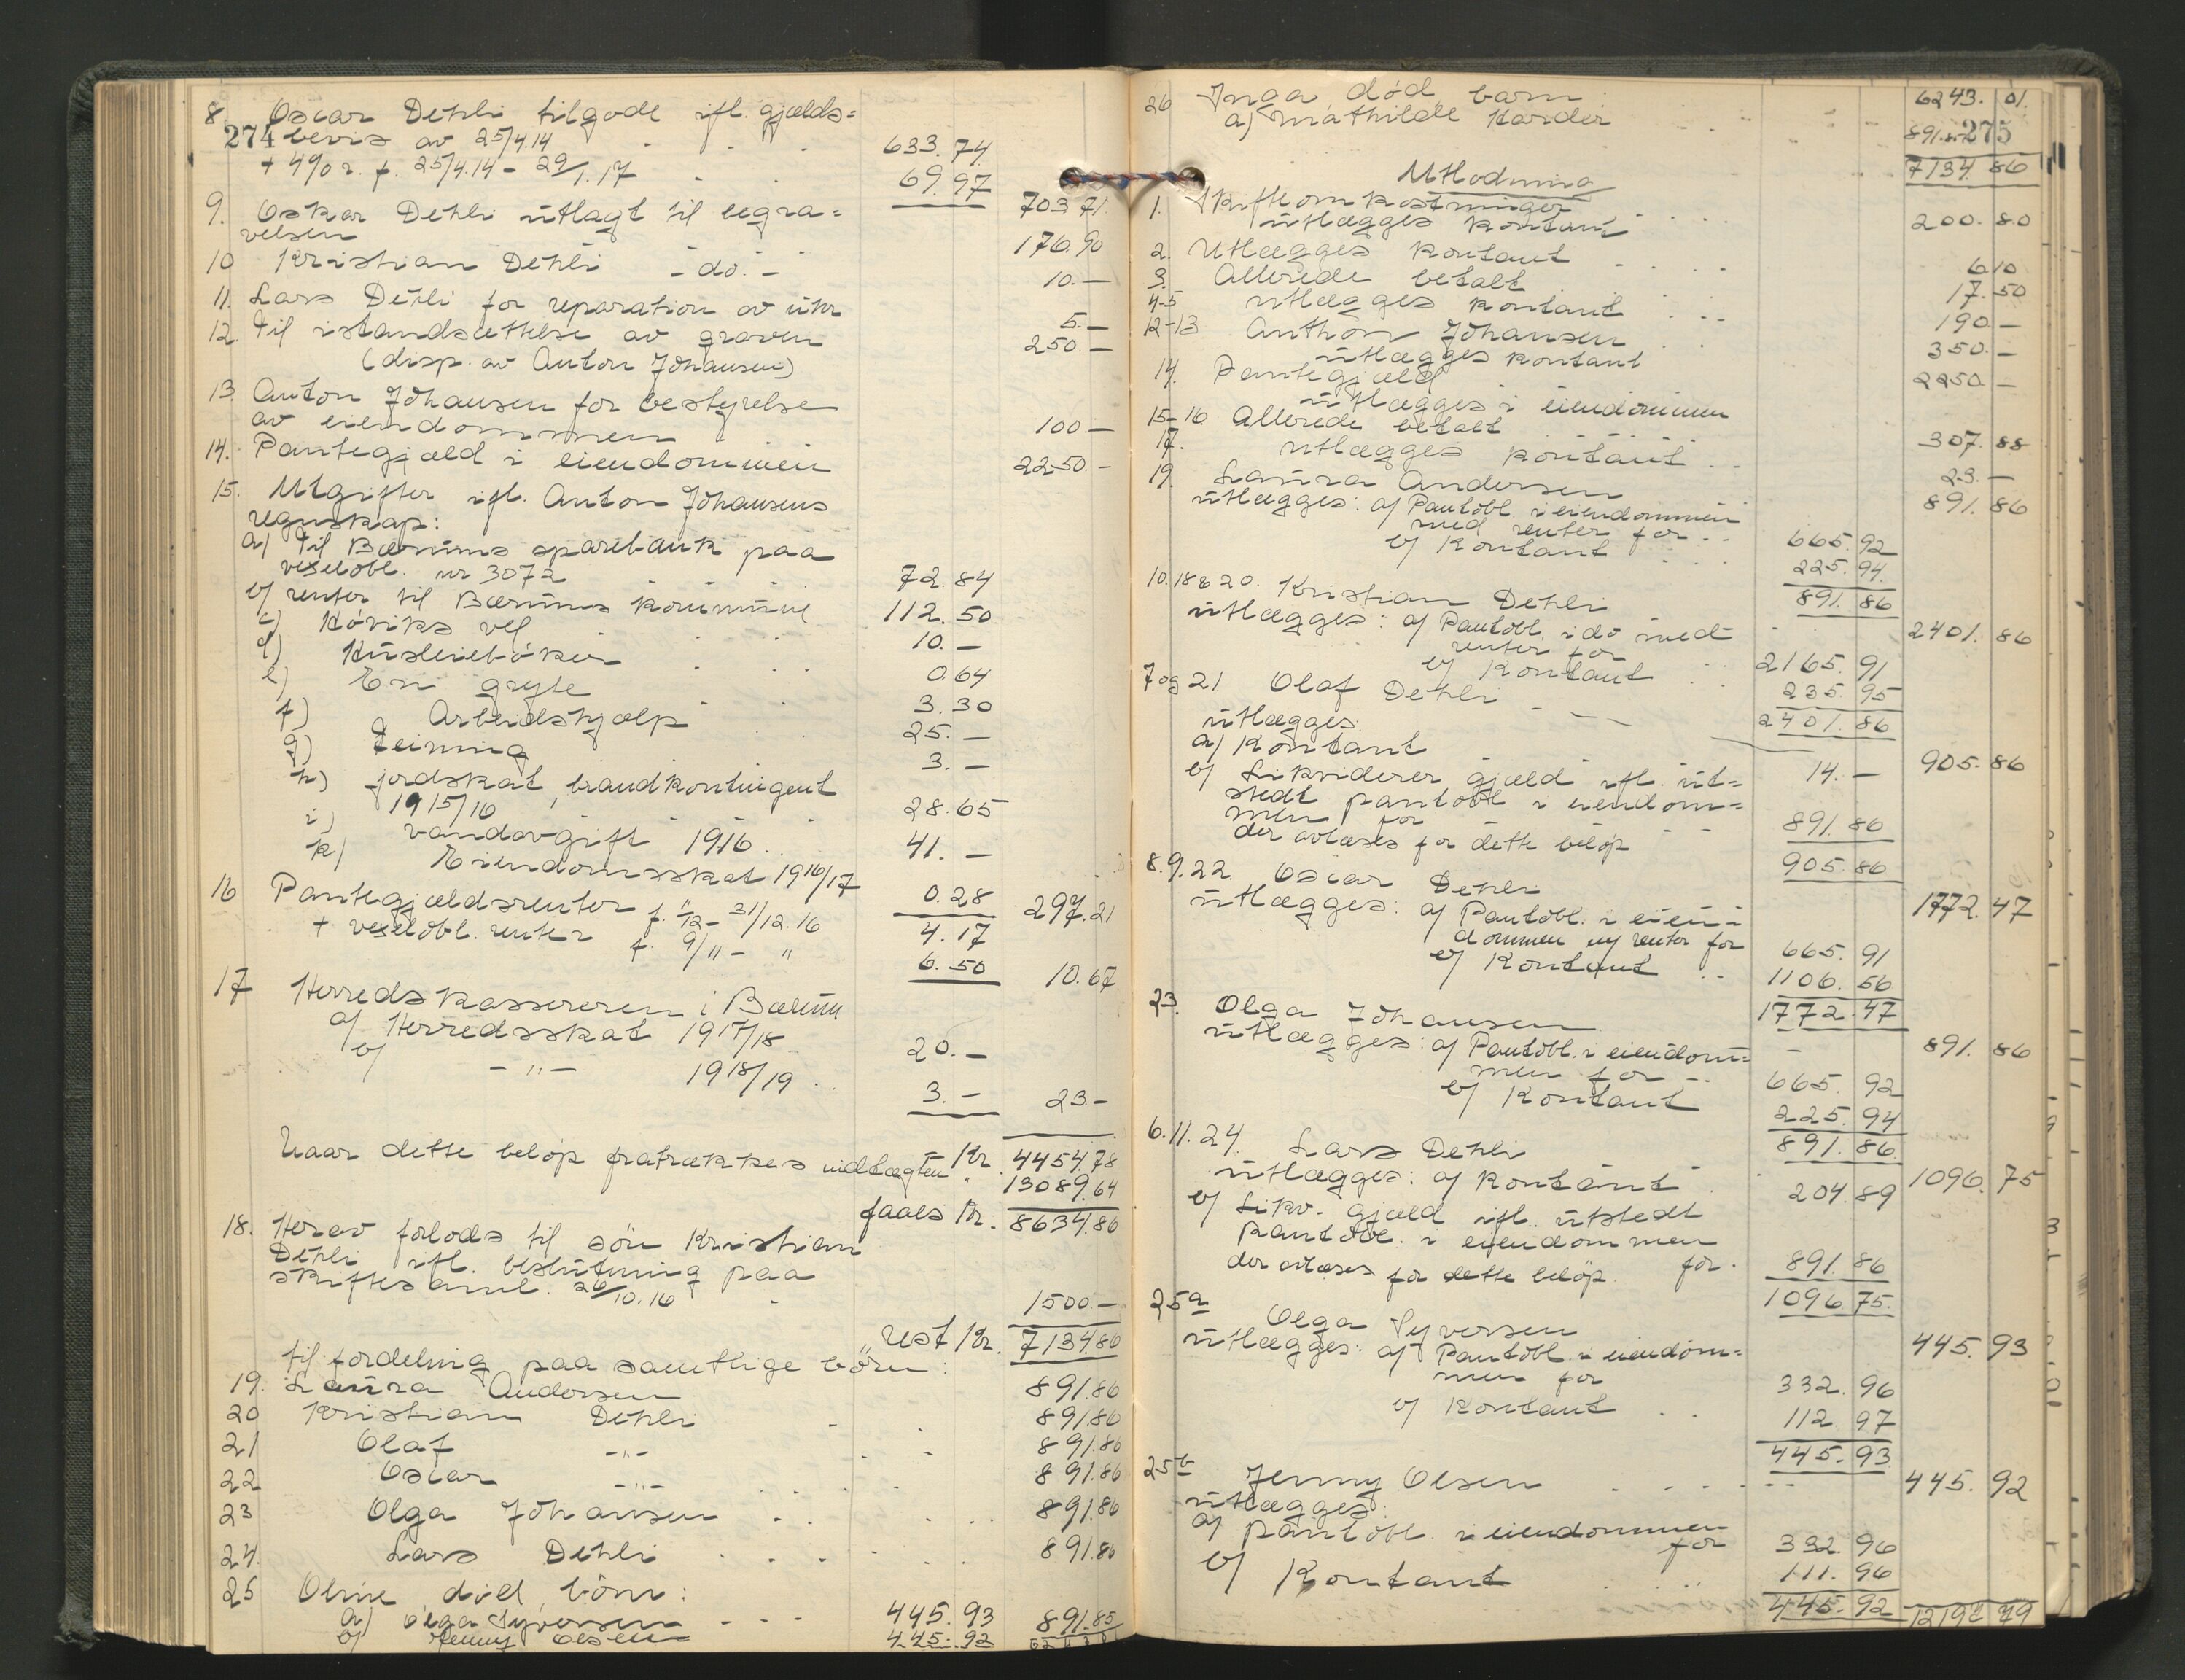 8. Oscar Dehli tilgode ifl. gjælds=
274 bevis av 25/4.14 . . . 633.74
+ 4% r. f. 25/4.14 - 29/1.17 . . 69.97 703 71
9. Oskar Dehli utlagt til begra=
velsen 176.90
10 Kristian Dehli - do. - 10.—
11. Lars Dehli for reparation av uhr 5.—
12. Til istandsættelse av graven 250.—
(disp. av Anton Johansen)
13. Anton Johansen for bestyrelse
av eiendommen 100—
14. Pantegjæld i eiendommen 2250.-
15. Utgifter ifl. Anton Johansens
regnskap:
a) Til Bærums sparebank paa
vexelobl. nr 3072 72.84
b) renter til Bærums kommune 112.50
c) Høviks vel 10.—
d) Husleiebøker 0.64
e) En gryte 3.30
f) Arbeidshjælp 25.—
g) Feining 3.—
h) jordskat, brandkontingent
1915/16 28.65
i) vandavgift 1916 . 41.—
k) Eiendomsskat 1916/17 0.28 297.21
16 Pantegjældsrenter f. 11/12 - 31/12.16 4.17
+ vexelobl. renter f. 9/11 - " 6.50 10.67
17 Herredskassereren i Bærum
a) Herredsskat 1917/18 20.—
b) - " - 1918/19 . . 3.— 23.-
Kr. 4454.78
Naar dette beløp fratrækkes indtægten " 13089.64
faaes Kr. 8634.86
18. Herav forlods til søn Kristian
Dehli ifl. beslutning paa
skiftesaml. 26/10.16 1500.—
rest Kr. 7134.86
til fordeling paa samtlige børn:
19. Laura Andersen 891.86
20 Kristian Dehli 891.86
21 Olaf -"- 891.86
22 Oscar -"- 891.86
23 Olga Johansen 891.86
24. Lars Dehli 891.86
25 Oline, død, børn:
a) Olga Syversen - - - 445.93 891.85
b) Jenny Olsen 445.92
26 Inga, død, barn 6243.01.
a) Mathilde Harder 891.85
275
7134.86
Utlodning
1. Skifteomkostninger
utlægges kontant 200.80
2. Utlægges kontant 6.10
3. Allerede betalt 17.50
4-5 utlægges kontant 190.—
12-13 Anthon Johansen
utlægges kontant 350.—
14. Pantegjæld
utlægges i eiendommen 2250.—
15-16 Allerede betalt 307.88
17. utlægges kontant 23.—
19. Laura Andersen 891.86
utlægges: a) Pantobl. i eiendommen
med renter for 665.92
b) Kontant 225.94.
891.86
10.18 & 20. Kristian Dehli 2401.86
utlægges: a) Pantobl. i do med
renter for 2165.91
b) Kontant 235.95
2401.86
7 og 21 Olaf Dehli 905.86
utlægges:
a) Kontant 14.—
b) Likviderer gjæld ifl. ut=
stedt pantobl. i eiendom=
men for 891.86
der avlæses for dette beløp 905.86
8.9.22. Oscar Dehli 1772.47
utlægges: a) Pantobl. i eien=
dommen m/ renter for 665.91
b) Kontant 1106.56
1772.47
23. Olga Johansen 891.86
utlægges: a) Pantobl. i eiendom=
men for 665.92
b) Kontant 225.94
891.86
6.11.24. Lars Dehli 1096.75
utlægges: a) kontant 204.89
b) Likv. gjæld ifl. utstedt
pantobl. i eiendommen
for. 891.86
der avlæses for dette beløp. 1096.75.
25a Olga Syversen 445.93
utlægges: a) Pantobl. i eiendom=
men for 332.96
b) Kontant 112.97
445.93
25b Jenny Olsen 445.92
utlægges:
a) pantobl. i eiendommen
for 332.96
b) Kontant 111.96
445.92